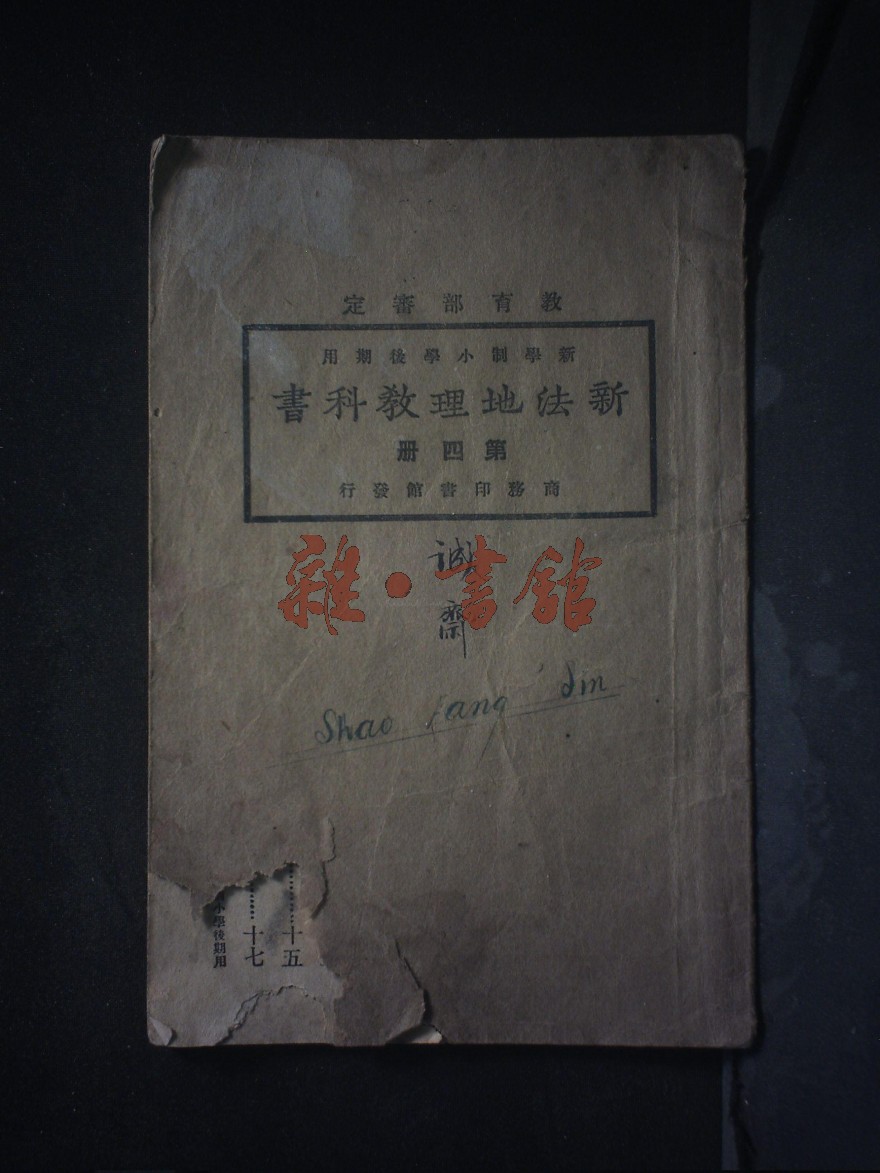 教育部審定
新學制小學後期用
新法地理教科書
第四冊
商務印書館發行
誠
齋
雜·書館
Shao
十五
十七
小學後期用